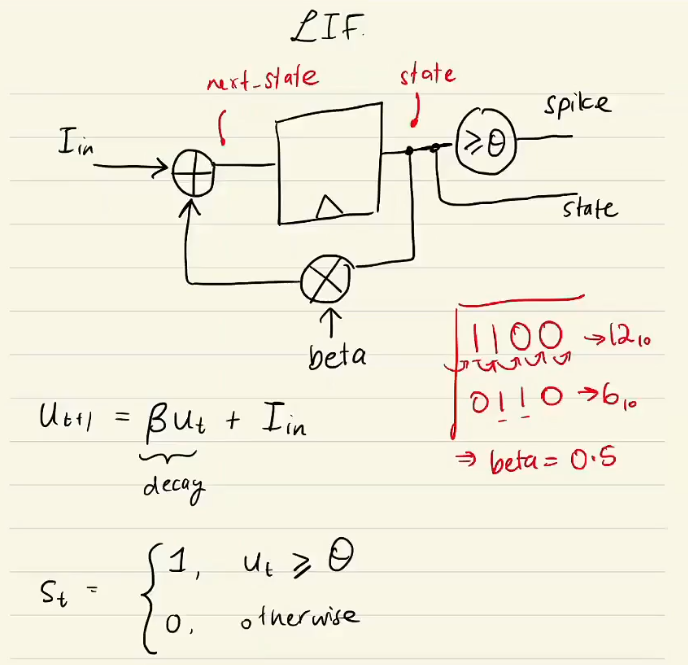 LIF.
next_state
state
spike
I_in
≥θ
state
beta
1100 → 12₁₀
0110 → 6₁₀
⇒ beta = 0.5
U_{t+1} = βU_t + I_in
decay
S_t = { 1, U_t ≥ θ
0, otherwise